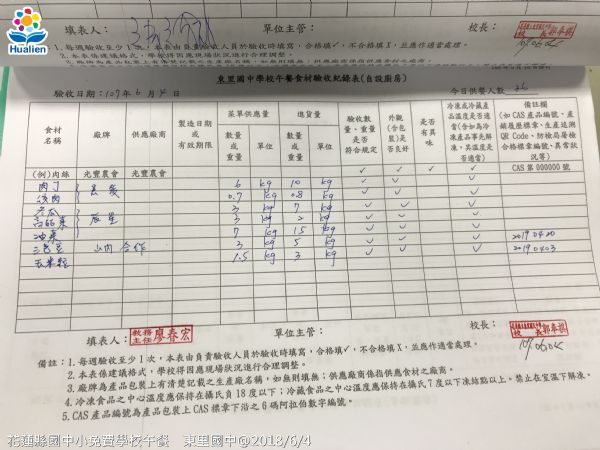 Hualien
填表人：
單位主管：
校長：
1.每週驗收至少1次，本表由負責驗收人員於驗收時填寫，合格填✓，不合格填X，並應作適當處理。
2.本表係建議格式，學校得因應現場狀況進行合理調整。
東里國中學校午餐食材驗收紀錄表(自設廚房)
驗收日期：107年6月4日
今日供餐人數 26
食材名稱
廠牌
供應廠商
製造日期或有效期限
菜單供應量
進貨量
數量或重量
單位
數量或重量
單位
驗收數量、重量是否符合規定
外觀(含包裝)是否良好
是否有異味
冷凍或冷藏產品溫度是否適當(含如為冷凍產品事先解凍，其溫度是否適當)
備註欄(如CAS產品編號、產銷履歷標章、生產追溯QR Code、防檢局屠檢合格標章編號、異常狀況等)
(例)肉絲 光豐農會 光豐農會 ✓ ✓ ✓ ✓ CAS 第 000000 號
肉丁 6 kg 10 kg ✓ ✓
絞肉 0.7 kg 0.8 kg ✓ ✓
3 kg 7 kg ✓ ✓ ✓
3 kg 2 kg ✓ ✓ ✓
油菜 7 kg 15 kg ✓ ✓ ✓ 2019.04.20
三色豆 山內合作 3 kg 5 kg ✓ ✓ ✓ 2019.04.03
玉米粒 1.5 kg 3 kg ✓ ✓ ✓
填表人：
教務主任 廖春宏
單位主管：
校長：
備註：1.每週驗收至少1次，本表由負責驗收人員於驗收時填寫，合格填✓，不合格填X，並應作適當處理。
2.本表係建議格式，學校得因應現場狀況進行合理調整。
3.廠牌為產品包裝上有清楚記載之生產廠名稱，如無則填無；供應廠商係指供應食材之廠商。
4.冷凍食品之中心溫度應保持在攝氏負18度以下；冷藏食品之中心溫度應保持在攝氏7度以下凍結點以上。禁止在室溫下解凍。
5.CAS產品編號為產品包裝上CAS標章下沿之6碼阿拉伯數字編號。
花蓮縣國中小免費學校午餐 東里國中@2018/6/4